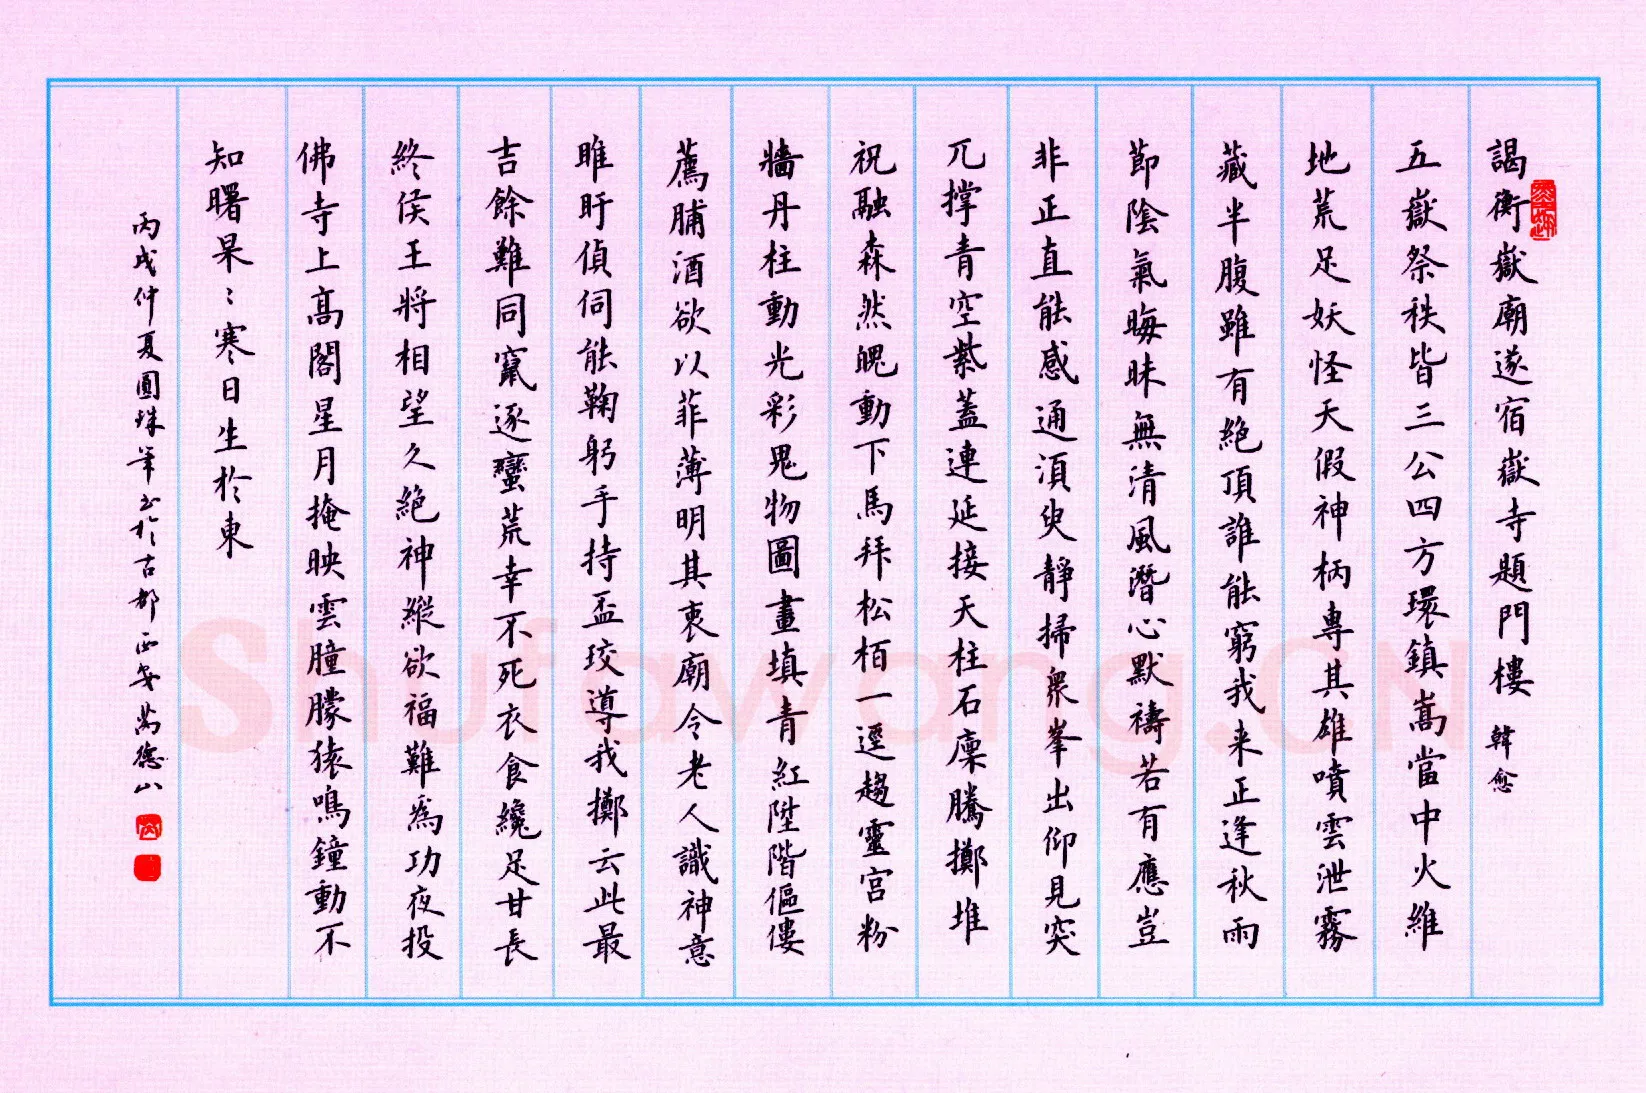 謁衡嶽廟遂宿嶽寺題門樓 韓愈
五嶽祭秩皆三公四方環鎮嵩當中火維
地荒足妖怪天假神柄專其雄噴雲泄霧
藏半腹雖有絕頂誰能窮我来正逢秋雨
節陰氣晦昧無清風潛心默禱若有應豈
非正直能感通須臾靜掃衆峯出仰見突
兀撑青空紫蓋連延接天柱石廩騰擲堆
祝融森然魄動下馬拜松栢一逕趨靈宮粉
牆丹柱動光彩鬼物圖畫填青紅陞階傴僂
薦脯酒欲以菲薄明其衷廟令老人識神意
睢盱偵伺能鞠躬手持盃珓導我擲云此最
吉餘難同竄逐蠻荒幸不死衣食纔足甘長
終侯王將相望久絕神縱欲福難爲功夜投
佛寺上高閣星月掩映雲朣朦猿鳴鐘動不
知曙杲〻寒日生於東
丙戌仲夏圓珠筆书於古都西安萬德山
Shufawang.CN